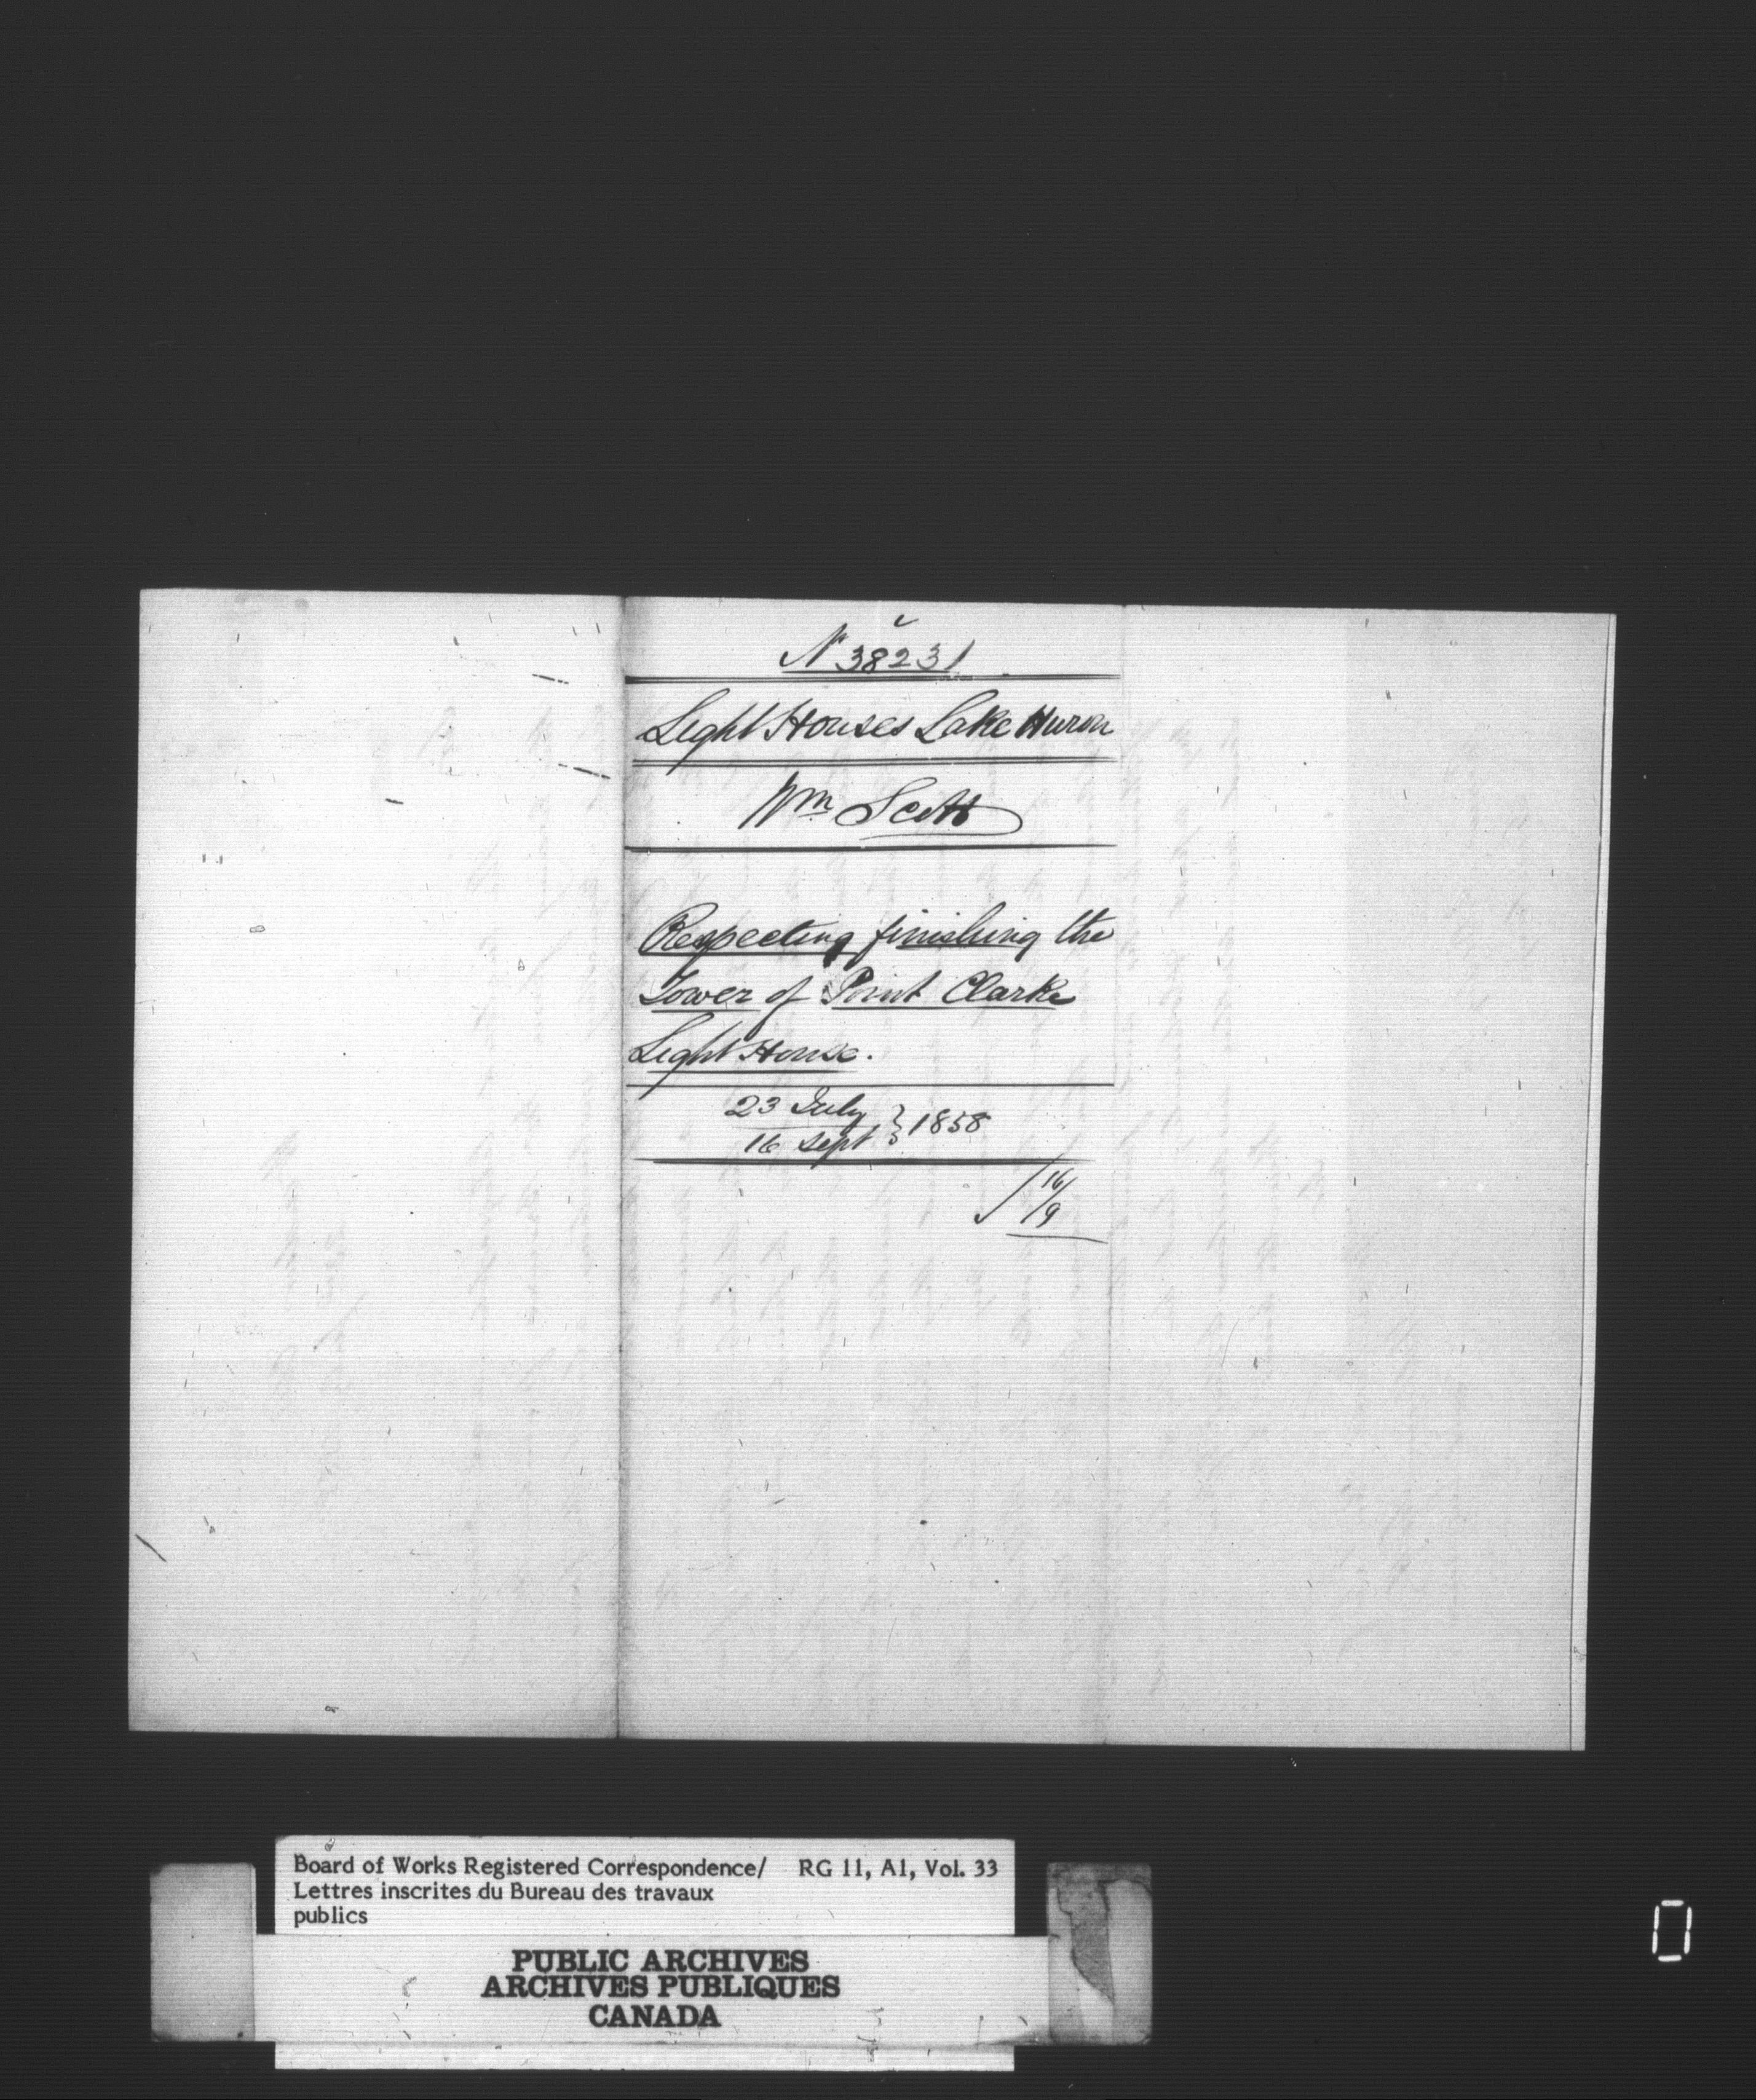 No 38231
Light Houses Lake Huron
Wm Scott
Respecting finishing the
Tower of Point Clarke
Light House.
23 July
16 Sept } 1858
16/9
Board of Works Registered Correspondence/ RG 11, A1, Vol. 33
Lettres inscrites du Bureau des travaux
publics
PUBLIC ARCHIVES
ARCHIVES PUBLIQUES
CANADA
0